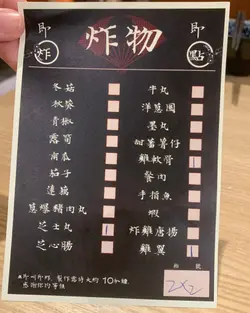 即 炸物 即
炸 點
冬菇
秋葵
青椒
露筍
南瓜
茄子
蓮藕
豬肉丸
芝士丸
芝心腸
牛丸
洋蔥圈
墨丸
甜薯仔
雞軟骨
餐肉
手指魚
蝦
炸雞唐揚
雞翼
▲即叫即炸，製作需時大約10分鐘
感謝你的等候
枱號
2X2